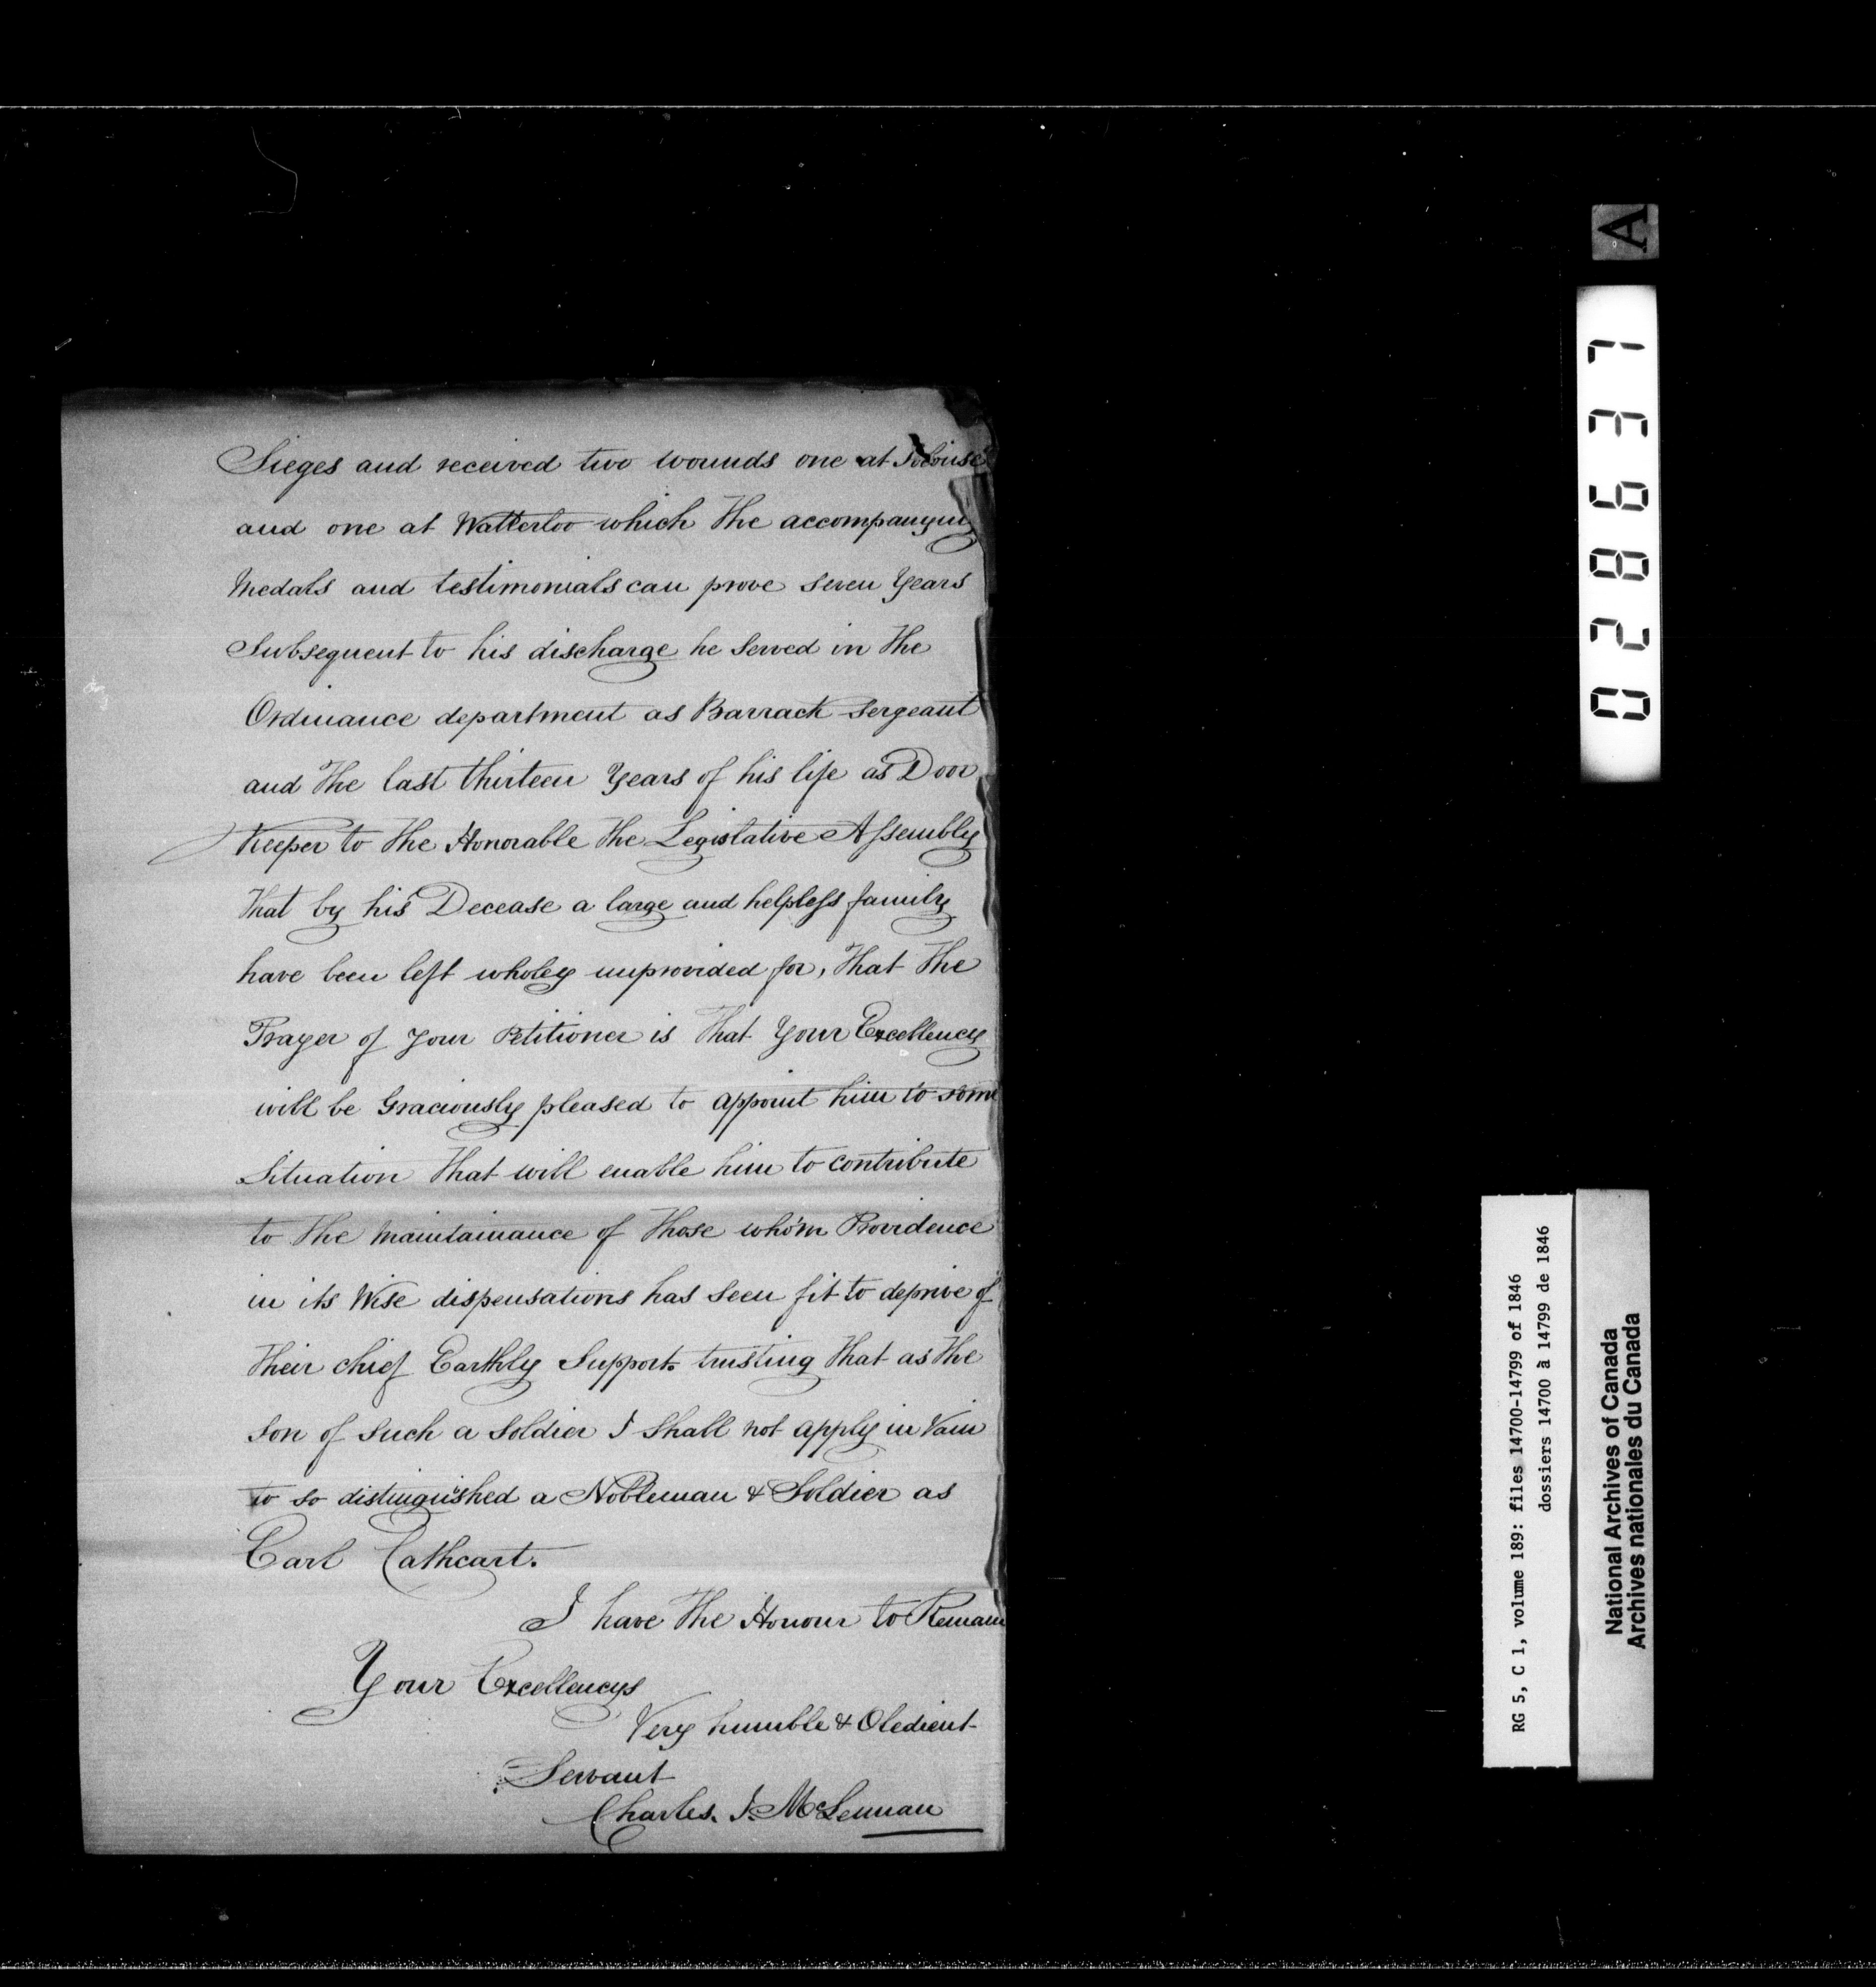 Sieges and received two wounds one at Tolouse
and one at Watterloo which the accompanying
Medals and testimonials can prove seven Years
Subsequent to his discharge he served in the
Ordinance department as Barrack Sergeant
and the last thirteen Years of his life as Door
Keeper to the Honorable the Legislative Assembly
That by his Decease a large and helpless family
have been left wholey unprovided for, That the
Prayer of Your Petitioner is That Your Excellency
will be Graciously pleased to appoint him to some
Situation That will enable him to contribute
to the Maintainance of Those whom Providence
in its Wise dispensations has seen fit to deprive of
Their chief Earthly Support. trusting That as the
son of such a soldier I shall not apply in Vain
to so distinguished a Nobleman & Soldier as
Earl Cathcart.
I have the Honour to Remain
Your Excellencys
Very humble & Obedient
Servant
Charles. I. McLennan
A
028637
RG 5, C 1, volume 189: files 14700-14799 of 1846
dossiers 14700 à 14799 de 1846
National Archives of Canada
Archives nationales du Canada